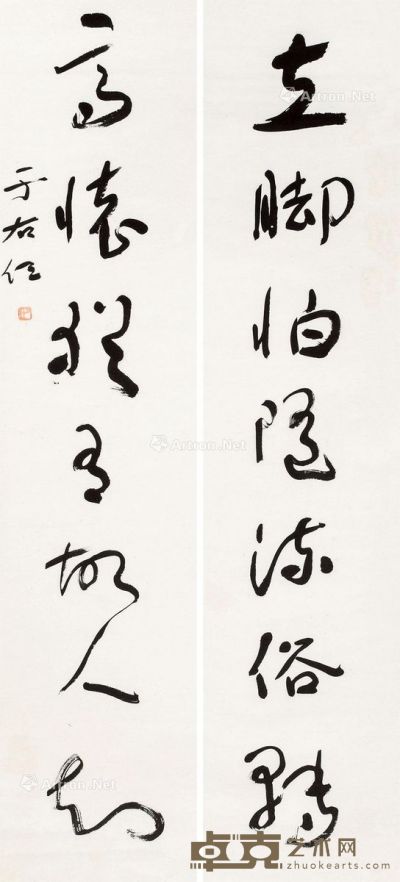 立脚怕随流俗转
高怀犹有故人知
于右任
Artron.Net
Artron.Net
Artron.Net
Artron.Net
卓克艺术网
zhuokearts.com